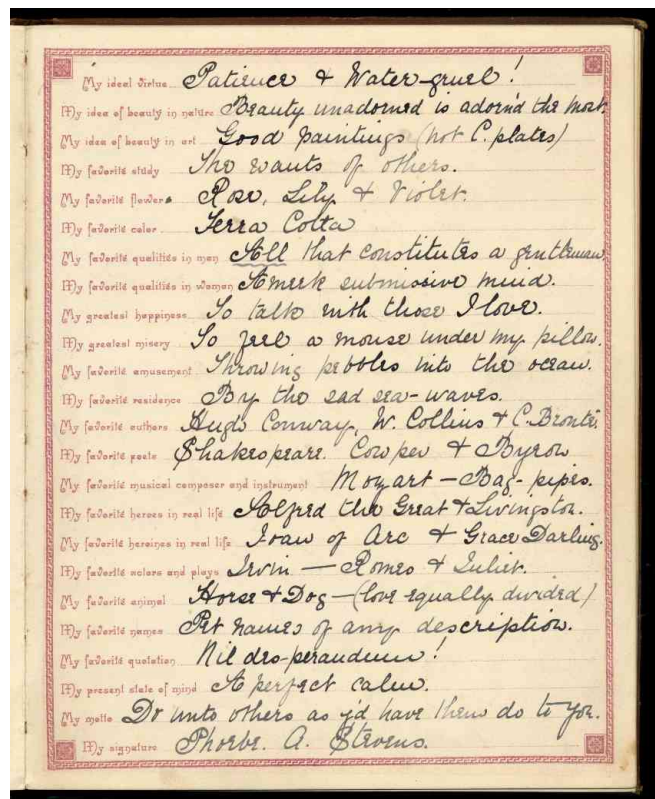 My ideal virtue Patience & Water-gruel!
My idea of beauty in nature Beauty unadorned is adorn'd the most.
My idea of beauty in art Good paintings (not C. plates)
My favorite study The wants of others.
My favorite flowers Rose, Lily & Violet.
My favorite color Terra Cotta
My favorite qualities in man All that constitutes a gentleman
My favorite qualities in women A meek submissive mind.
My greatest happiness To talk with those I love.
My greatest misery To feel a mouse under my pillow.
My favorite amusement Throwing pebbles into the ocean.
My favorite residence By the sad sea-waves.
My favorite authors Hugh Conway, W. Collins & C. Brontë.
My favorite poets Shakespeare. Cowper & Byron
My favorite musical composer and instrument Mozart – Bag-pipes.
My favorite heroes in real life Alfred the Great & Livingston.
My favorite heroines in real life Joan of Arc & Grace Darling.
My favorite actors and plays Irvin – Romeo & Juliet.
My favorite animal Horse & Dog – (love equally divided)
My favorite names Pet names of any description.
My favorite quotation Nil des-perandum!
My present state of mind A perfect calm.
My motto Do unto others as y'd have them do to you.
My signature Phoebe. A. Stevens.